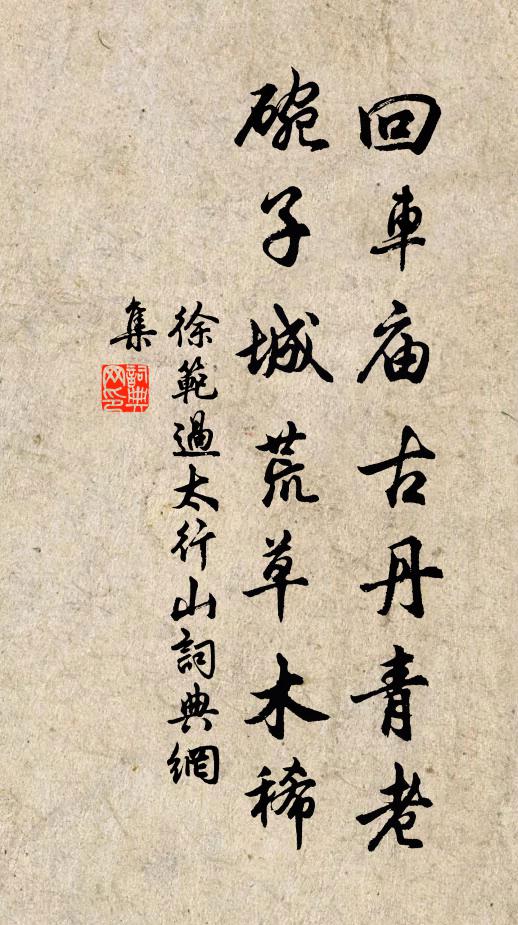 回車庙古丹青老
碗子城荒草木稀
徐範過太行山詞典網
集
詞典網印